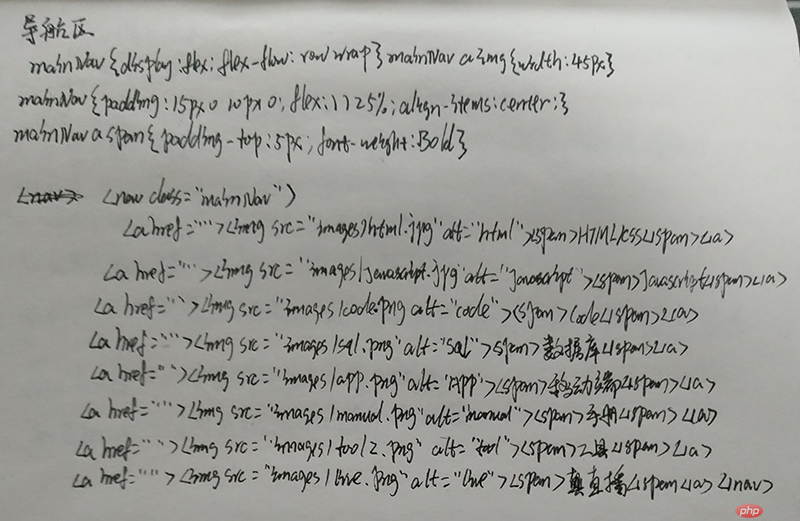 导航区
mainNav{display:flex; flex-flow: row wrap} mainNav a img{width:45px}
mainNav{padding:15px 0 10px 0; flex:1 1 25%; align-items:center;}
mainNav a span{padding-top:5px; font-weight:Bold}
<nav> <nav class="mainNav">
<a href=""><img src="images/html.jpg" alt="html"><span>HTML/css</span></a>
<a href=""><img src="images/javascript.jpg" alt="javascript"><span>Javascript</span></a>
<a href=""><img src="images/code.png alt="code"><span>Code</span></a>
<a href=""><img src="images/sql.png" alt="sql"><span>数据库</span></a>
<a href=""><img src="images/app.png" alt="APP"><span>移动端</span></a>
<a href=""><img src="images/manual.png" alt="manual"><span>手册</span></a>
<a href=""><img src="images/tool2.png" alt="tool"><span>工具</span></a>
<a href=""><img src="images/live.png" alt="live"><span>直播</span></a></nav>
php